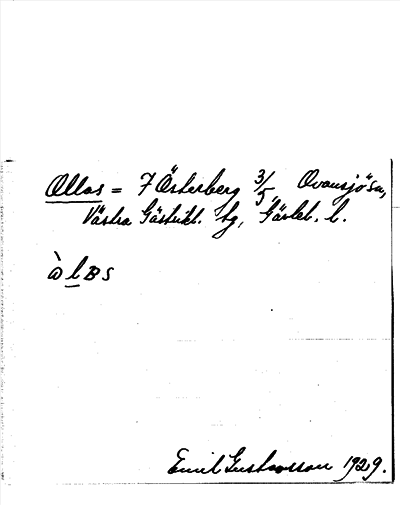 Ollas = 7 Österberg 3/5, Ovansjö sn,
Västra Gästrikl. tg, Gävleb. l.
ὰ l B S
Emil Gustavsson 1929.